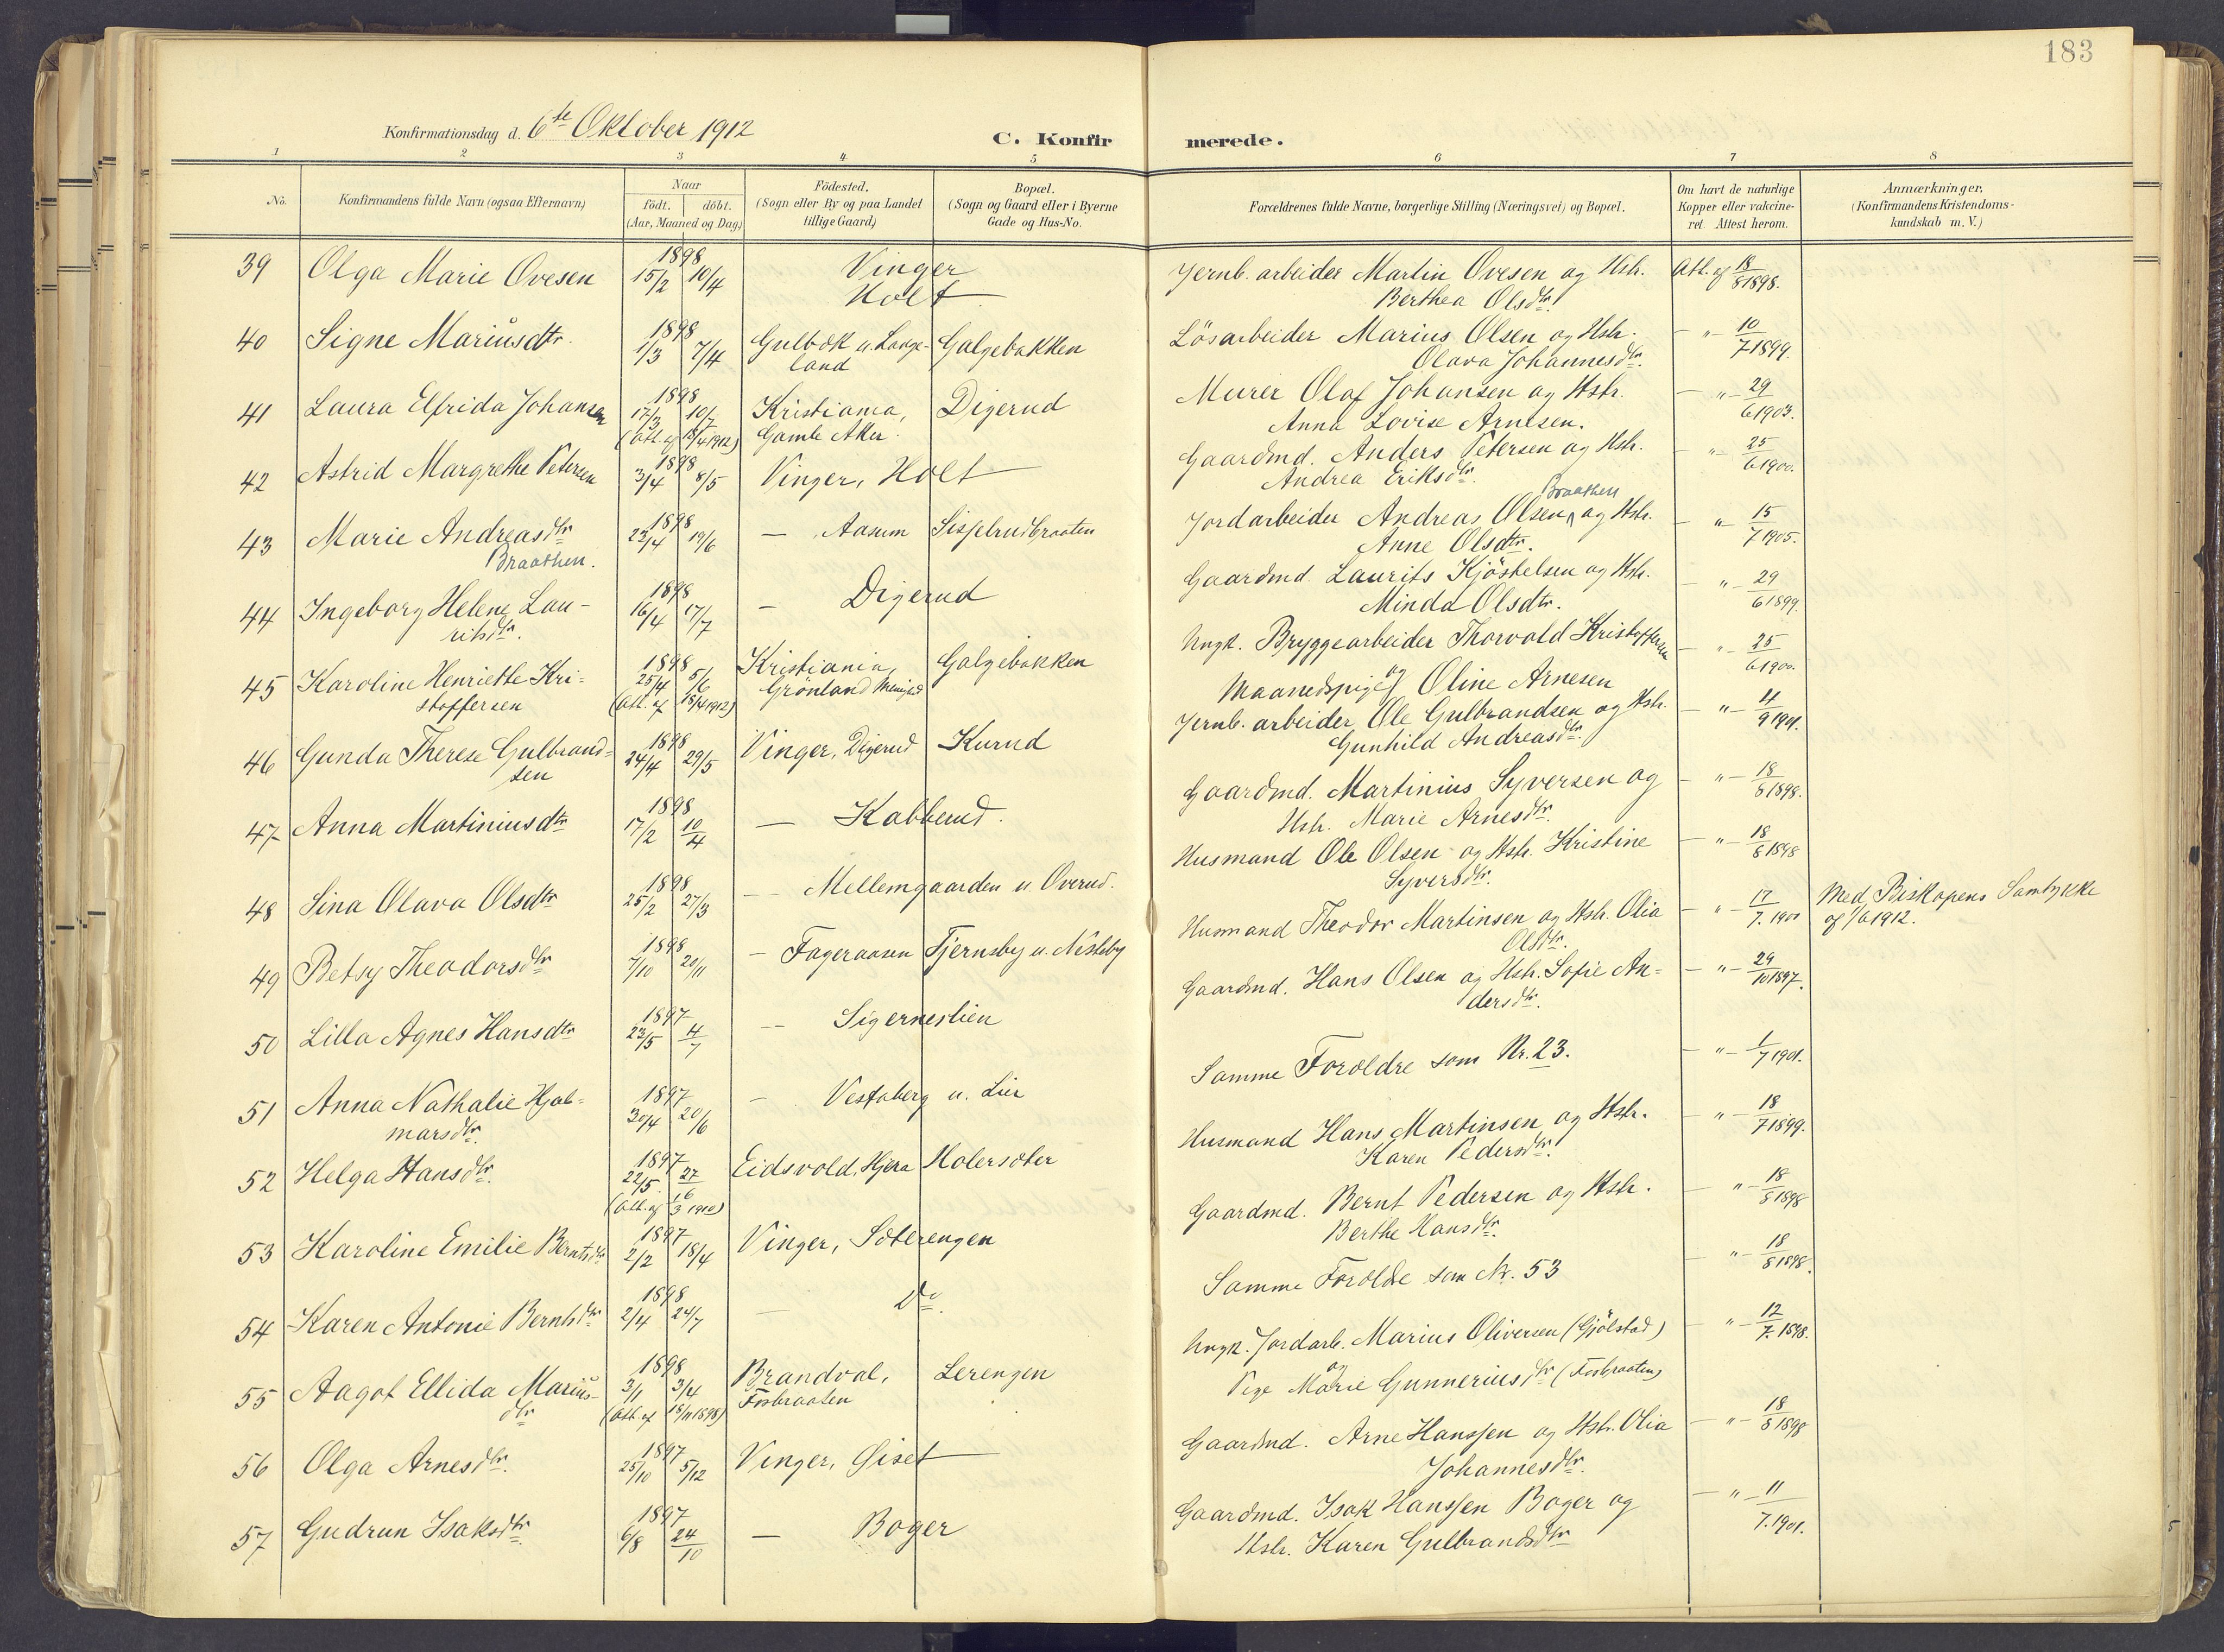 183
Konfirmationsdag d. 6te Oktober 1912
C. Konfirmerede.
1 2 3 4 5 6 7 8
No.
Konfirmandens fulde Navn (ogsaa Efternavn)
Naar
födt. döbt.
(Aar, Maaned og Dag)
Födested.
(Sogn eller By og paa Landet
tillige Gaard)
Bopæl.
(Sogn og Gaard eller i Byerne
Gade og Hus-No.
Forældrenes fulde Navne, borgerlige Stilling (Næringsvei) og Bopæl.
Om havt de naturlige
Kopper eller vakcine-
ret. Attest herom.
Anmærkninger.
(Konfirmandens Kristendoms-
kundskab m. V.)
39 Olga Marie Ovesen 1898 15/2 10/4 Vinger Holt Jernb. arbeider Martin Ovesen og Hstr. Att. af 18/8 1898.
Berthea Olsdtr.
40 Signe Mariusdtr. 1898 1/3 7/4 Gulbæk u. Lange- Galgebakken Lösarbeider Marius Olsen og Hstr. — " — 10/7 1899.
land Olava Johannesdtr.
41 Laura Elfrida Johansen 1898 17/3 10/7 Kristiania, Digerud Murer Olaf Johansen og Hstr. — " — 29/6 1903.
(Att. af 15/4 1912) Gamle Aker. Anna Lovise Arnesen.
42 Astrid Margrethe Petersen 1898 3/4 8/5 Vinger, Holt Gaardmd. Anders Petersen og Hstr. — " — 25/6 1900.
Andrea Eriksdtr.
Braathen
43 Marie Andreasdtr 1898 23/4 19/6 — Aasum Sisselrudbraaten Jordarbeider Andreas Olsen og Hstr. — " — 15/7 1905.
Braathen. Anne Olsdtr.
44 Ingeborg Helene Lau- 1898 16/4 17/7 — Digerud Gaardmd. Laurits Kjöstelsen og Hstr. — " — 29/6 1899.
ritsdtr. Minda Olsdtr.
45 Karoline Henriette Kri- 1898 25/4 5/6 Kristiania, Galgebakken Ungk. Bryggearbeider Thorvald Kristoffersen — " — 25/6 1900.
stoffersen (Att. af 15/4 1912) Grönland Menighed og Oline Arnesen
46 Gunda Therese Gulbrand- 1898 24/4 29/5 Vinger, Digerud Kurud Jernb. arbeider Ole Gulbrandsen og Hstr. — " — 4/9 1901.
sen Gunhild Andreasdtr.
47 Anna Martiniusdtr 1898 17/2 10/4 — Kabberud. Gaardmd. Martinius Syversen og — " — 18/8 1898.
Hstr. Marie Arnesdtr.
48 Sina Olava Olsdtr 1898 25/2 27/3 — Mellemgaarden u. Overud. Husmand Ole Olsen og Hstr. Kristine — " — 18/8 1898
Syversdtr.
49 Betsy Theodorsdtr 1898 7/10 20/11 — Fageraasen Tjernsby u. Nisteby Husmand Theodor Martinsen og Hstr. Olia — " — 17/7. 1900 Med Biskopens Samtykke
Olsdtr. af 1/6 1912.
50 Lilla Agnes Hansdtr 1897 23/5 4/7 — Sigernestien Gaardmd. Hans Olsen og Hstr. Sofie An- — " — 29/10 1897.
dersdtr.
51 Anna Nathalie Hjal- 1897 30/4 20/6 — Vestaberg u. Lier Samme Forældre som Nr. 23. — " — 1/7 1901.
marsdtr.
52 Helga Hansdtr. 1897 22/5. 27/6 Eidsvold, Hjera Holersæter Husmand Hans Martinsen og Hstr. — " — 18/7 1899.
Karen Pedersdtr.
53 Karoline Emilie Berntsdtr 1897 2/2 18/4 Vinger, Sæterengen Gaardmd. Bernt Pedersen og Hstr. — " — 18/8 1898
Berthe Hansdtr.
54 Karen Antonie Berntsdtr 1898 2/4 24/7 — Do. Samme Forældre som Nr. 53 — " — 18/8 1898.
55 Aagot Ellida Marius- 1898 3/1 3/4 Brandval, Lerengen Ungk. Jordarb. Marius Oliversen (Gjölstad) — " — 12/7. 1898.
dtr (Att. af 18/11 1898) Fosbraaten og Pige Marie Gunneriusdtr (Fosbraaten)
56 Olga Arnesdtr. 1897 25/10 5/12 Vinger, Giset Gaardmd. Arne Hanssen og Hstr. Olia — " — 18/8 1898
Johannesdtr.
57 Gudrun Isaksdtr. 1897 6/8 24/10 — Boger Gaardmd. Isak Hanssen Boger og — " — 11/7. 1901.
Hstr. Karen Gulbrandsdtr